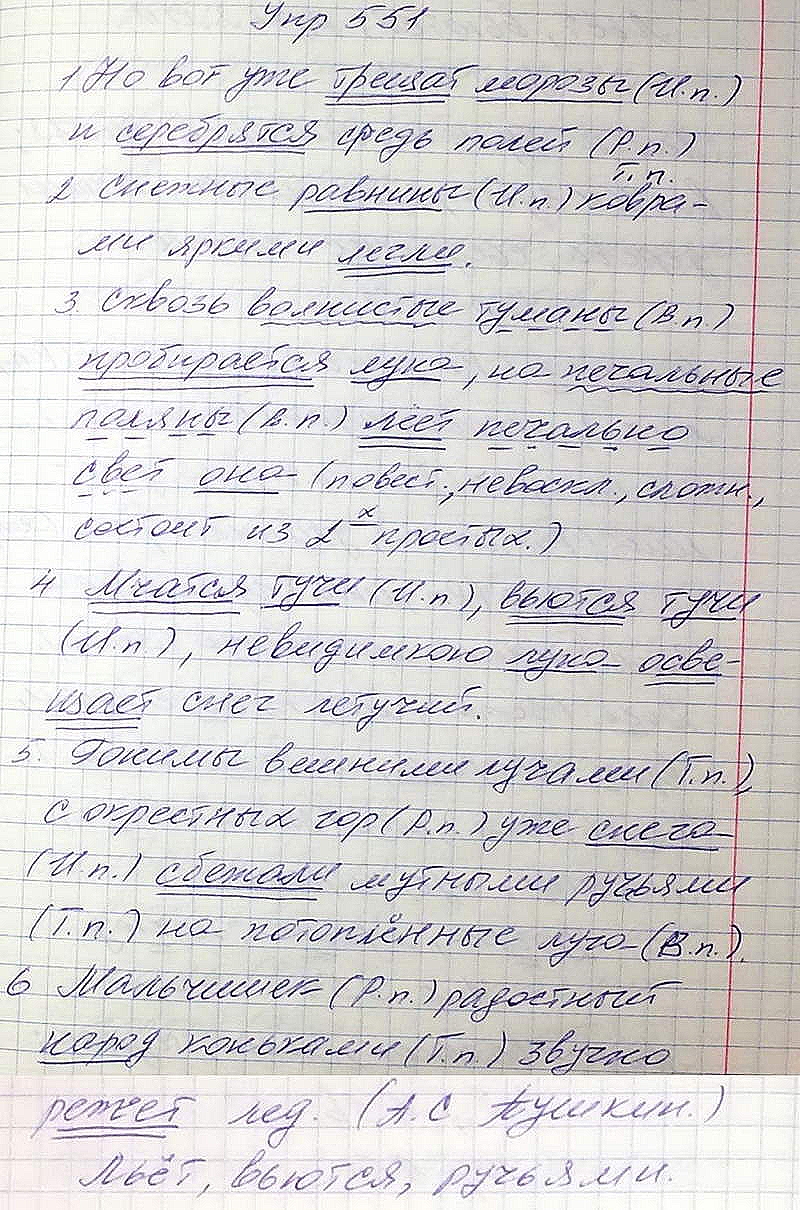 Упр 551
1 Но вот уже трещат морозы (И.п.)
и серебрятся средь полей (Р.п.)
Т.п.
2 Снежные равнины (И.п.) ковра-
ми яркими легли.
3. Сквозь волнистые туманы (В.п.)
пробирается луна, на печальные
поляны (В.п.) льёт печально
свет она (повест., невоскл., сложн.,
состоит из 2х простых.)
4 Мчатся тучи (И.п), вьются тучи
(И.п.), невидимкою луна осве-
щает снег летучий.
5. Гонимы вешними лучами (Т.п.),
с окрестных гор (Р.п.) уже снега
(И.п.) сбежали мутными ручьями
(Т.п.) на потоплённые луга (В.п.).
6 Мальчишек (Р.п.) радостный
народ коньками (Т.п.) звучно
режет лед. (А.С Пушкин.)
Льёт, вьются, ручьями.